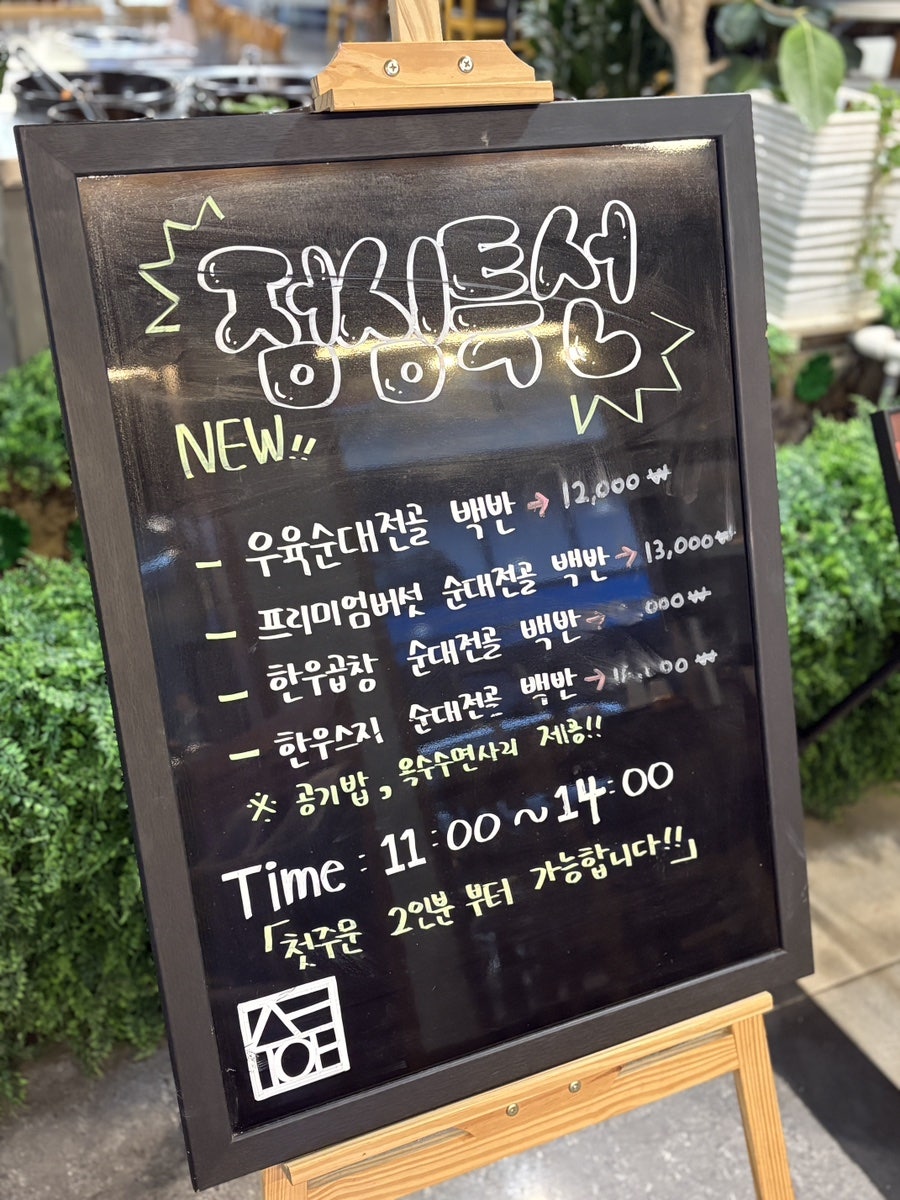 점심특선
NEW!!
- 우육순대전골 백반 → 12,000 ₩
- 프리미엄버섯 순대전골 백반 → 13,000₩
- 한우곱창 순대전골 백반 → 000₩
- 한우스지 순대전골 백반 → ₩
※ 공기밥, 옥수수면사리 제공!!
Time : 11:00 ~ 14:00
「첫주문 2인분 부터 가능합니다!!」